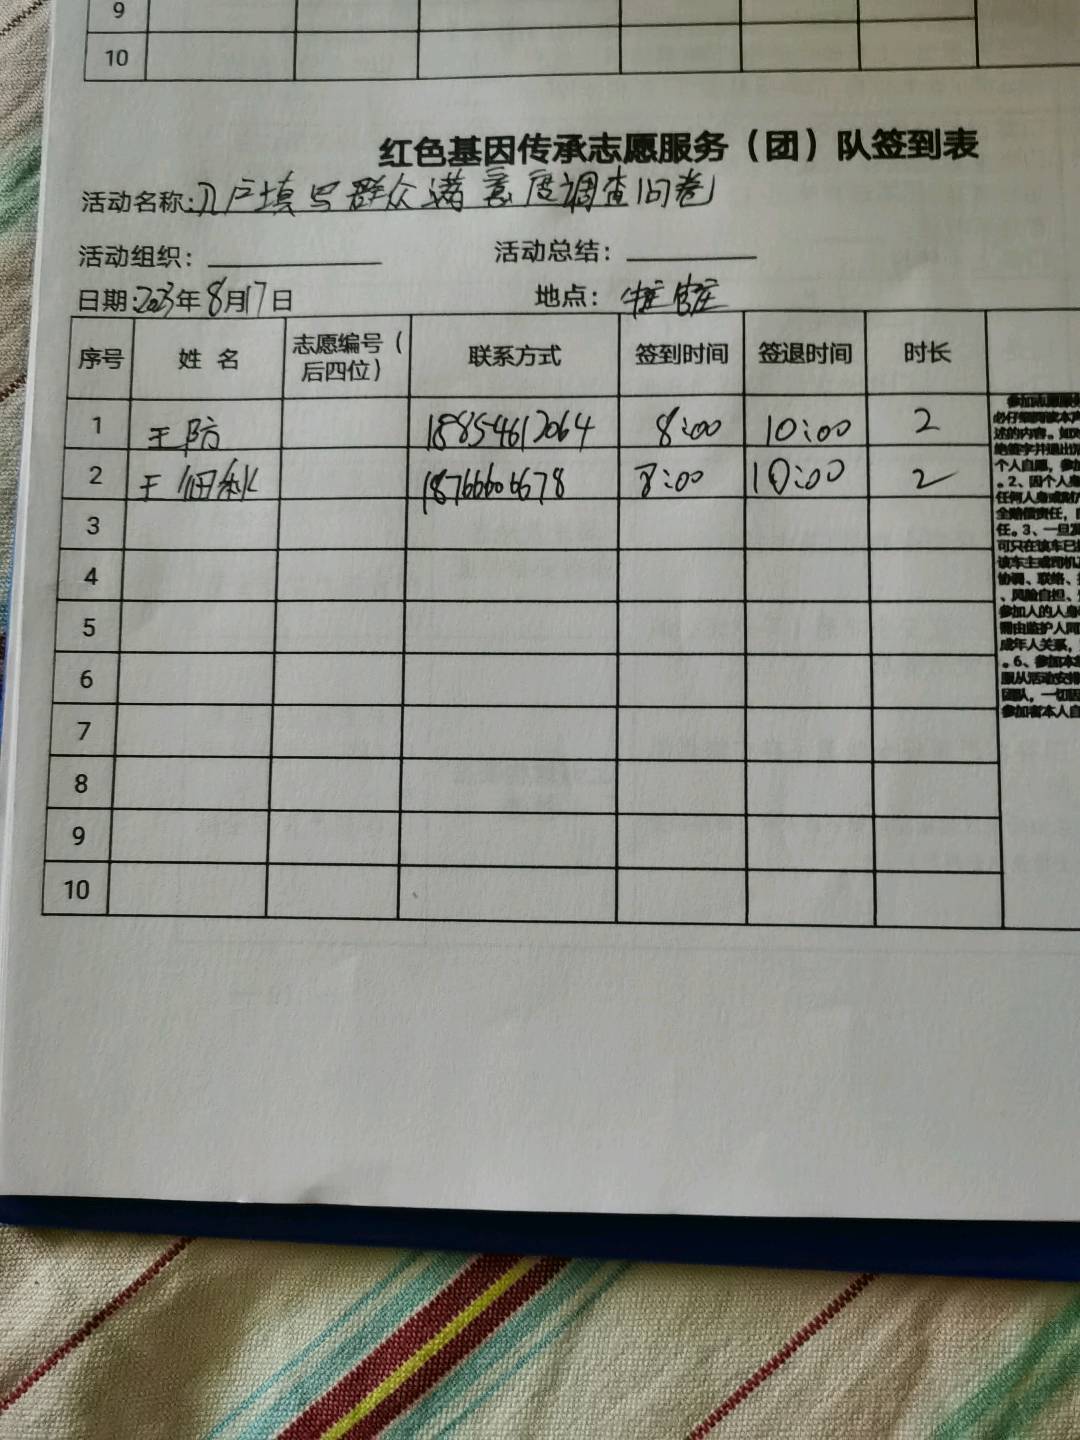 9
10
红色基因传承志愿服务（团）队签到表
活动名称：入户填写群众满意度调查问卷
活动组织： 活动总结：
日期：2023年8月17日 地点：
序号 姓 名 志愿编号（后四位） 联系方式 签到时间 签退时间 时长
1 王防 18854612064 8:00 10:00 2
2 王 18766606678 8:00 10:00 2
3
4
5
6
7
8
9
10
参加志愿服务
必仔细阅读本声
述的内容。如对
绝签字并退出活
个人自愿，参加
。2、因个人身
任何人身或财产
全赔偿责任，
任。3、一旦发
可只在该车已投
该车主或司机
协调、联络、
、风险自担、
参加人的人身
需由监护人同
成年人关系，
。6、参加本
服从活动安排
团队，一切
参加者本人自